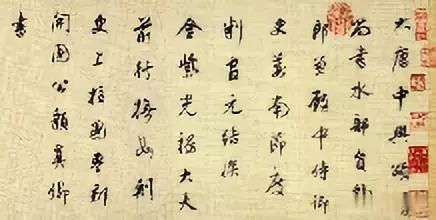 大唐中興頌
尚書水部員外
郎兼殿中侍御
史荊南節度
判官元結撰
金紫光祿大夫
前行撫州刺
史上柱國魯郡
開國公顏真卿
書